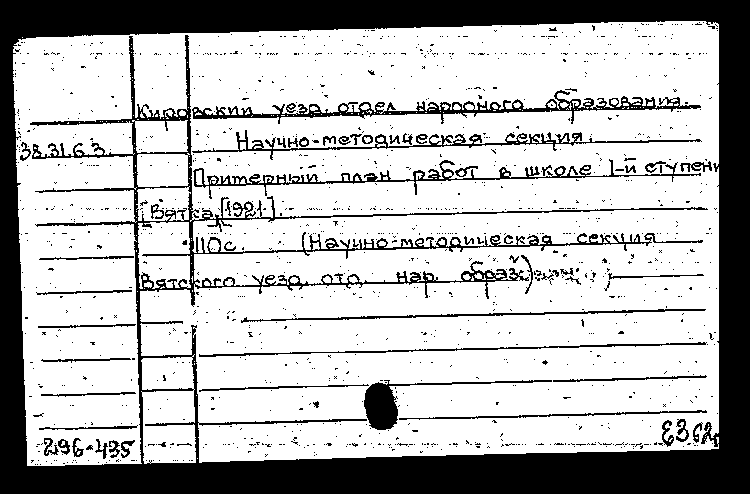 Кировский уезд. отдел народного образования.
38.31.6.3. Научно-методическая секция.
Примерный план работ в школе 1-й ступени
[Вятка, [1921].
110с. (Научно-методическая секция
Вятского уезд. отд. нар. образ.)
296-435